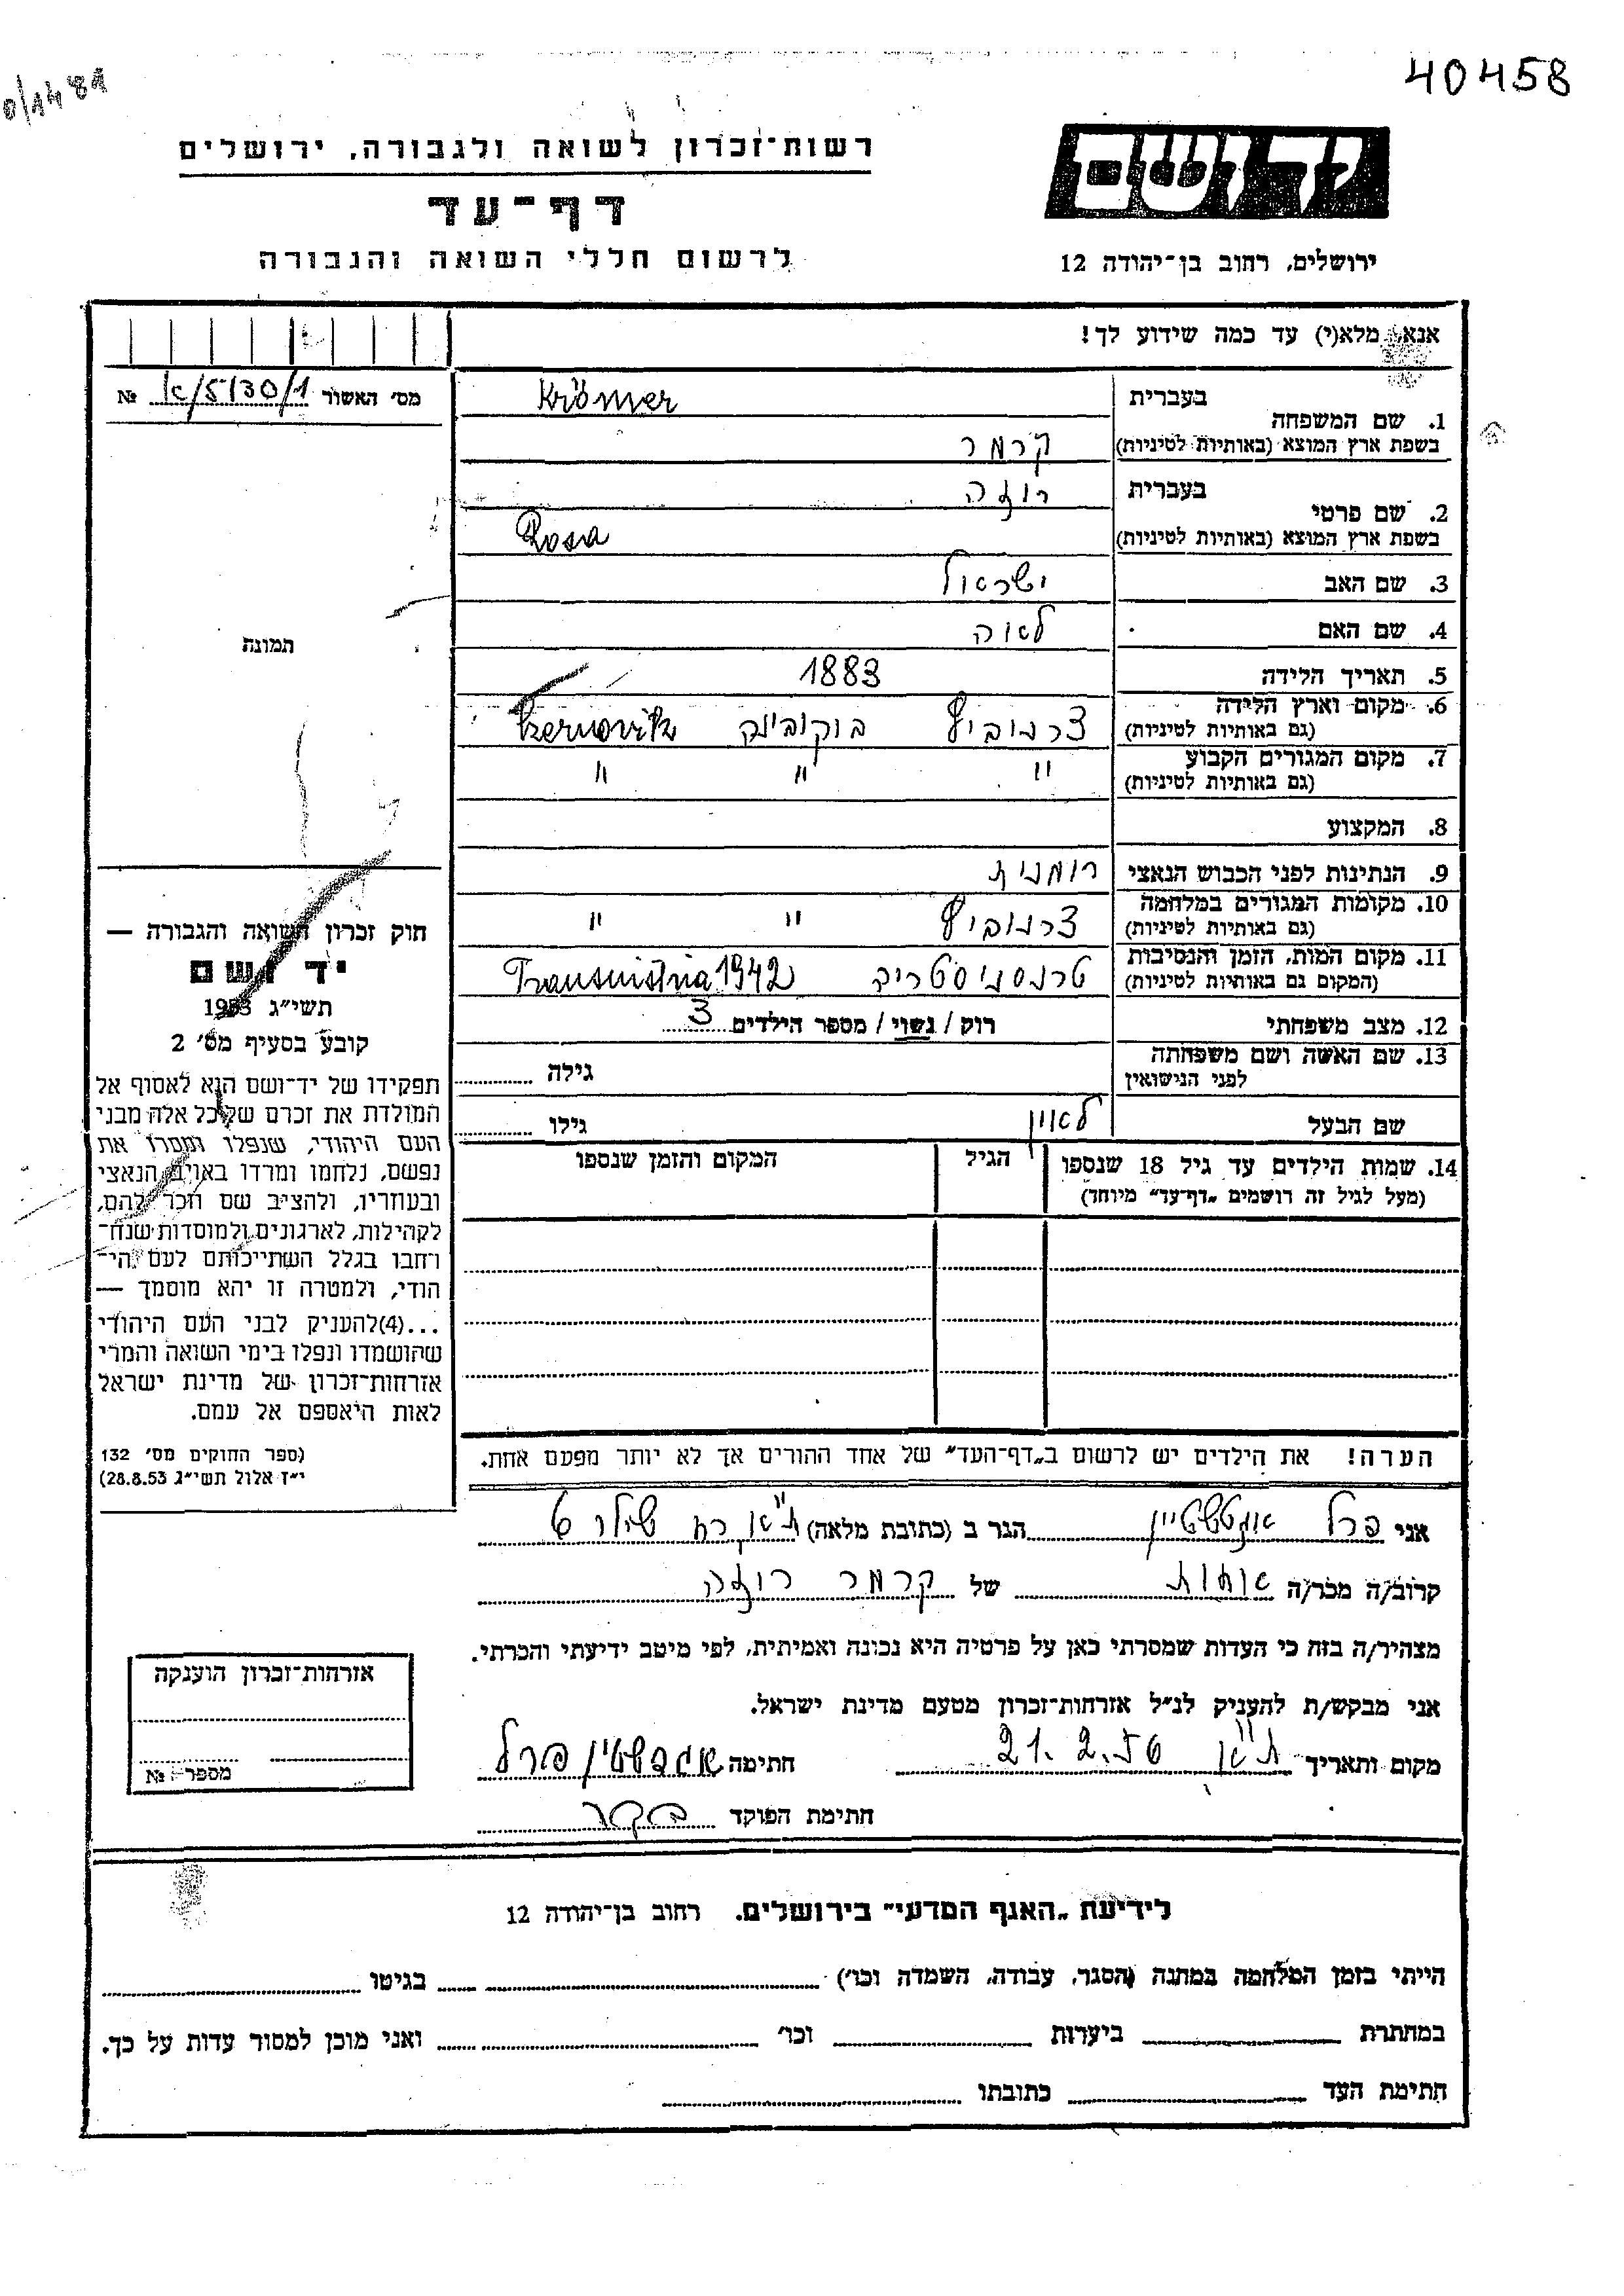 40458
רשות־זכרון לשואה ולגבורה, ירושלים
יד ושם
דף־עד
לרשום חללי השואה והגבורה
ירושלים, רחוב בן־יהודה 12
אנא, מלא(י) עד כמה שידוע לך!
מס׳ האשור № K/5130/1
בעברית Krömer
1. שם המשפחה
בשפת ארץ המוצא (באותיות לטיניות) קרמר
בעברית רוזה
2. שם פרטי
בשפת ארץ המוצא (באותיות לטיניות) Rosa
3. שם האב ישראל
4. שם האם לאה
תמונה
5. תאריך הלידה 1883
6. מקום וארץ הלידה צרנוביץ בוקובינה
(גם באותיות לטיניות)
7. מקום המגורים הקבוע " " "
(גם באותיות לטיניות)
8. המקצוע
9. הנתינות לפני הכבוש הנאצי רומנית
10. מקומות המגורים במלחמה צרנוביץ " "
(גם באותיות לטיניות)
11. מקום המות, הזמן והנסיבות טרנסניסטריה Transnistria 1942
(המקום גם באותיות לטיניות)
12. מצב משפחתי רוק / נשוי / מספר הילדים 3
13. שם האשה ושם משפחתה גילה
לפני הנישואין
שם הבעל לאון גילו
14. שמות הילדים עד גיל 18 שנספו הגיל המקום והזמן שנספו
(מעל לגיל זה רושמים „דף־עד" מיוחד)
חוק זכרון השואה והגבורה —
יד ושם
תשי״ג 1953
קובע בסעיף מס׳ 2
תפקידו של יד־ושם הוא לאסוף אל
המולדת את זכרם של כל אלה מבני
העם היהודי, שנפלו ומסרו את
נפשם, נלחמו ומרדו באויב הנאצי
ובעוזריו, ולהציב שם וזכר להם,
לקהילות, לארגונים ולמוסדות שנח־
רחבו בגלל השתייכותם לעם הי־
הודי, ולמטרה זו יהא מוסמך —
...(4)להעניק לבני העם היהודי
שהושמדו ונפלו בימי השואה והמרי
אזרחות־זכרון של מדינת ישראל
לאות היאספם אל עמם.
(ספר החוקים מס׳ 132
י״ז אלול תשי״ג 28.8.53)
הערה! את הילדים יש לרשום ב„דף־העד" של אחד ההורים אך לא יותר מפעם אחת.
אני פרל הגר ב (כתובת מלאה) ת"א רח
קרוב/ה מכר/ה אחות של קרמר רוזה
מצהיר/ה בזה כי העדות שמסרתי כאן על פרטיה היא נכונה ואמיתית, לפי מיטב ידיעתי והכרתי.
אני מבקש/ת להעניק לנ״ל אזרחות־זכרון מטעם מדינת ישראל.
מקום ותאריך ת"א 21.2.56 חתימה פרל
חתימת הפוקד
אזרחות־זכרון הוענקה
מספר №
לידיעת „האגף המדעי" בירושלים, רחוב בן־יהודה 12
הייתי בזמן המלחמה במחנה (הסגר, עבודה, השמדה וכו׳) בגיטו
במחתרת ביערות וכו׳ ואני מוכן למסור עדות על כך.
חתימת העד כתובתו